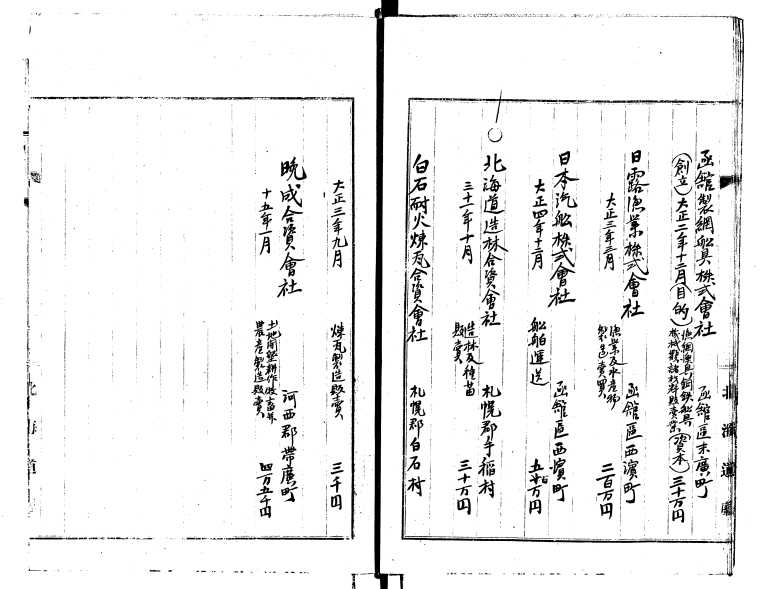 函館製網船具株式會社 函館區末廣町
(創立)大正二年十二月(目的)漁網漁具銅鉄船具 (資本)三十万円
日露漁業株式會社 函館區西濱町
大正三年三月 漁業及水産物製造賣買 二百万円
日本汽船株式會社 函館區西濱町
大正四年十二月 船舶運送 万円
北海道造林合資會社 札幌郡手稲村
三十一年十月 造林及種苗販賣 三十万円
白石耐火煉瓦合資會社 札幌郡白石村
大正三年九月 煉瓦製造販賣 三千円
晩成合資會社 河西郡帶廣町
十五年一月 土地開墾耕作牧畜并農産製造販賣 四万五千円
北海道廳